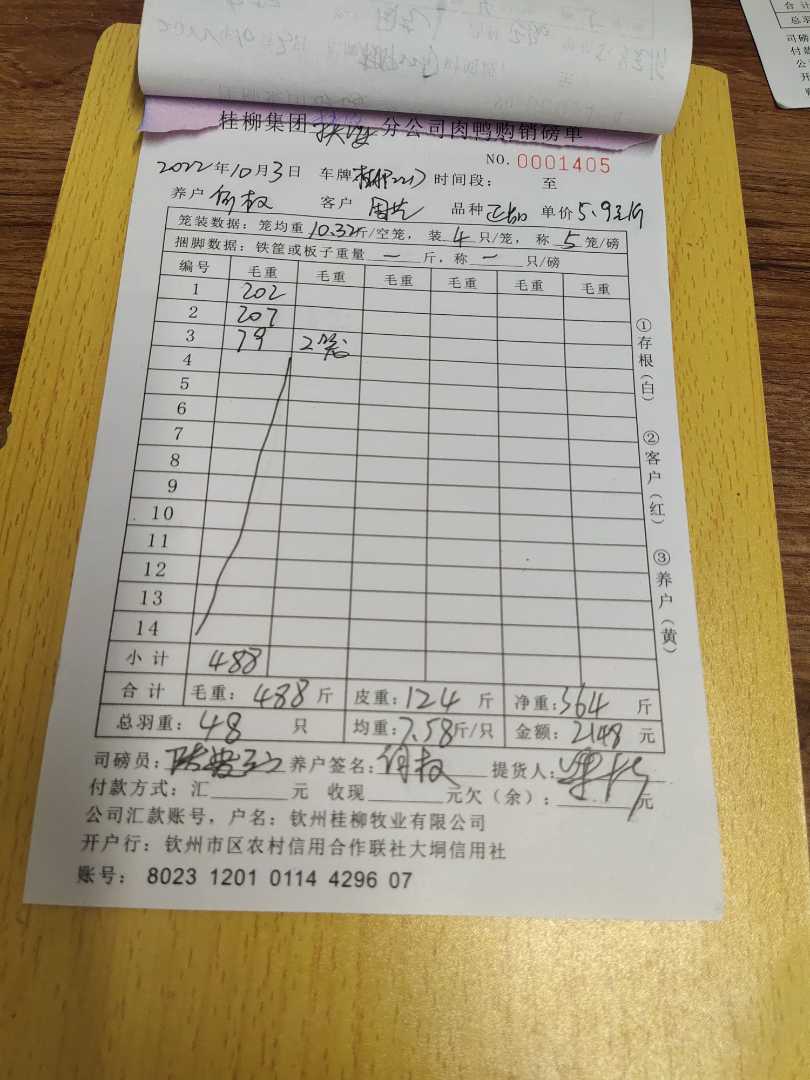 桂柳集团 分公司肉鸭购销磅单
NO. 0001405
2022年10月3日 车牌 时间段: 至
养户 何权 客户 品种 正品 单价 5.9元/斤
笼装数据: 笼均重 10.32斤/空笼, 装 4 只/笼, 称 5 笼/磅
捆脚数据: 铁筐或板子重量 — 斤, 称 — 只/磅
编号 毛重 毛重 毛重 毛重 毛重 毛重
1 202
2 207
3 79 2笼
4
5
6
7
8
9
10
11
12
13
14
小计 488
合计 毛重: 488 斤 皮重: 124 斤 净重: 364 斤
总羽重: 48 只 均重: 7.58斤/只 金额: 2148 元
司磅员: 养户签名: 何权 提货人:
付款方式: 汇 元 收现 元欠(余): 元
公司汇款账号, 户名: 钦州桂柳牧业有限公司
开户行: 钦州市区农村信用合作联社大垌信用社
账号: 8023 1201 0114 4296 07
①存根(白)
②客户(红)
③养户(黄)
合计
总羽
司磅
付款
公
开